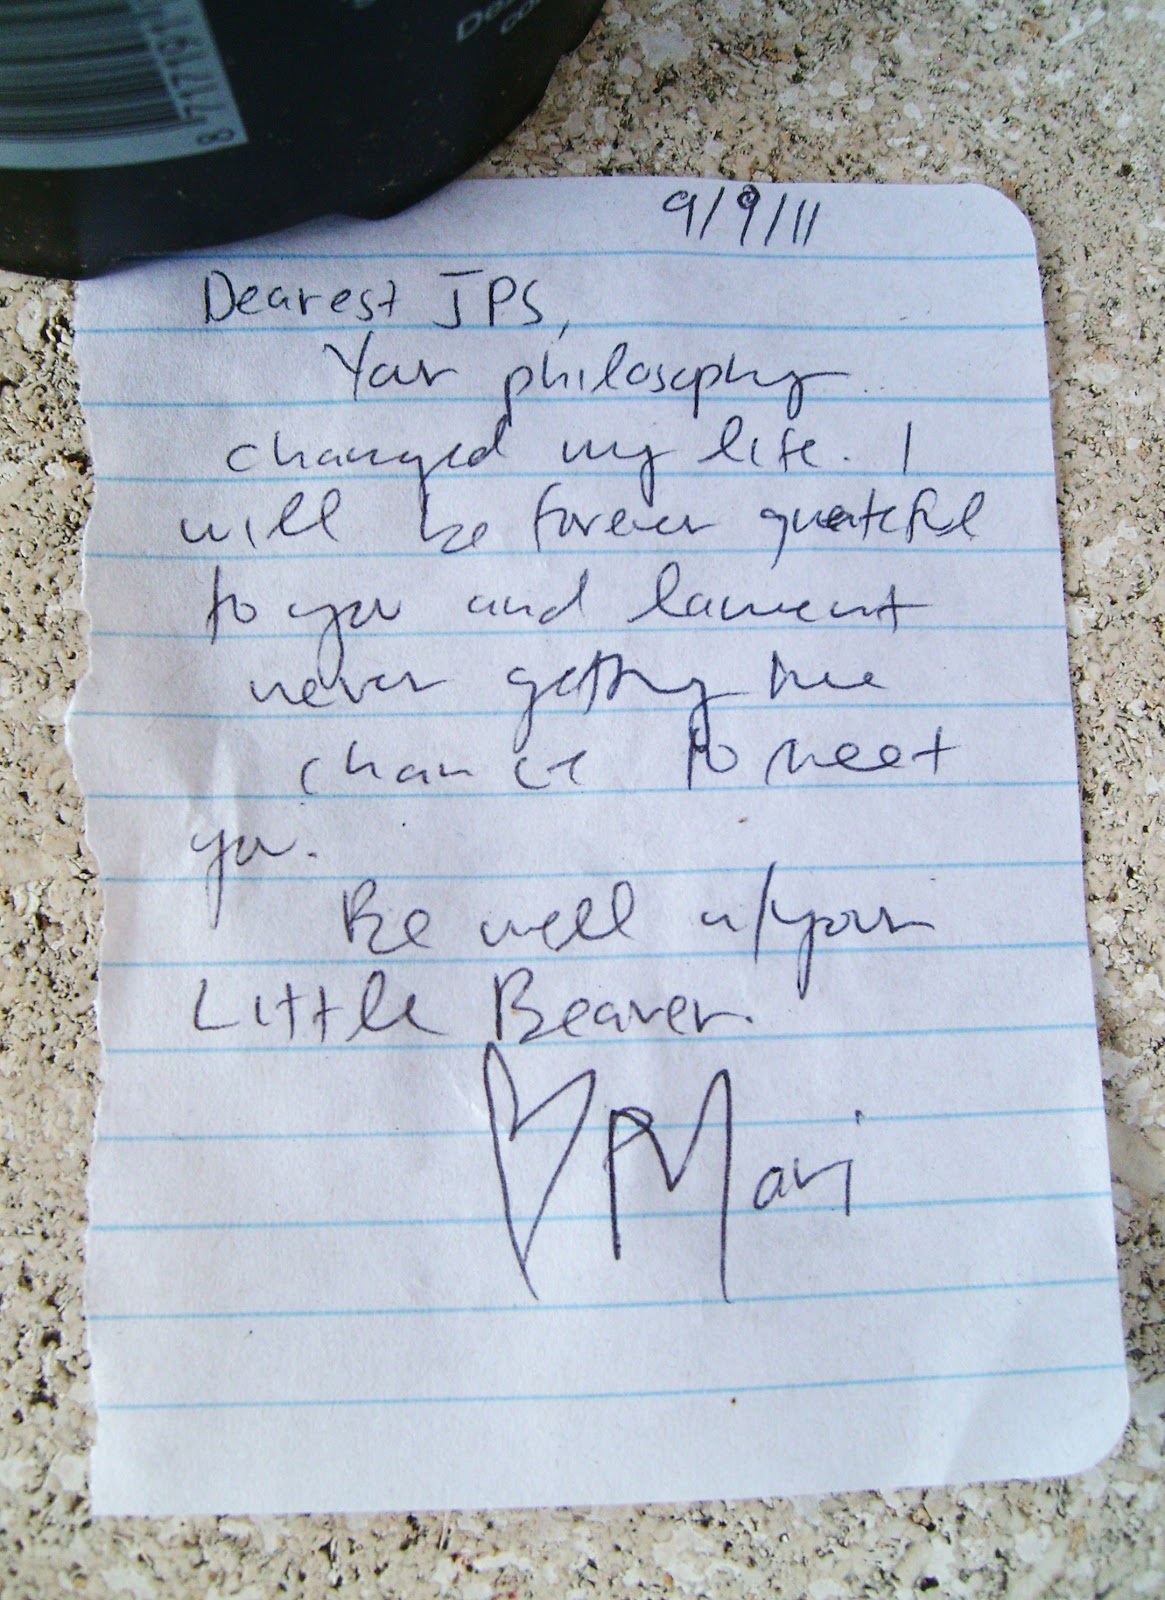 9/9/11
Dearest JPS,
Your philosophy
changed my life. I
will be forever grateful
to you and lament
never getting the
chance to meet
you.
Be well w/your
Little Beaver.
♡ Mari